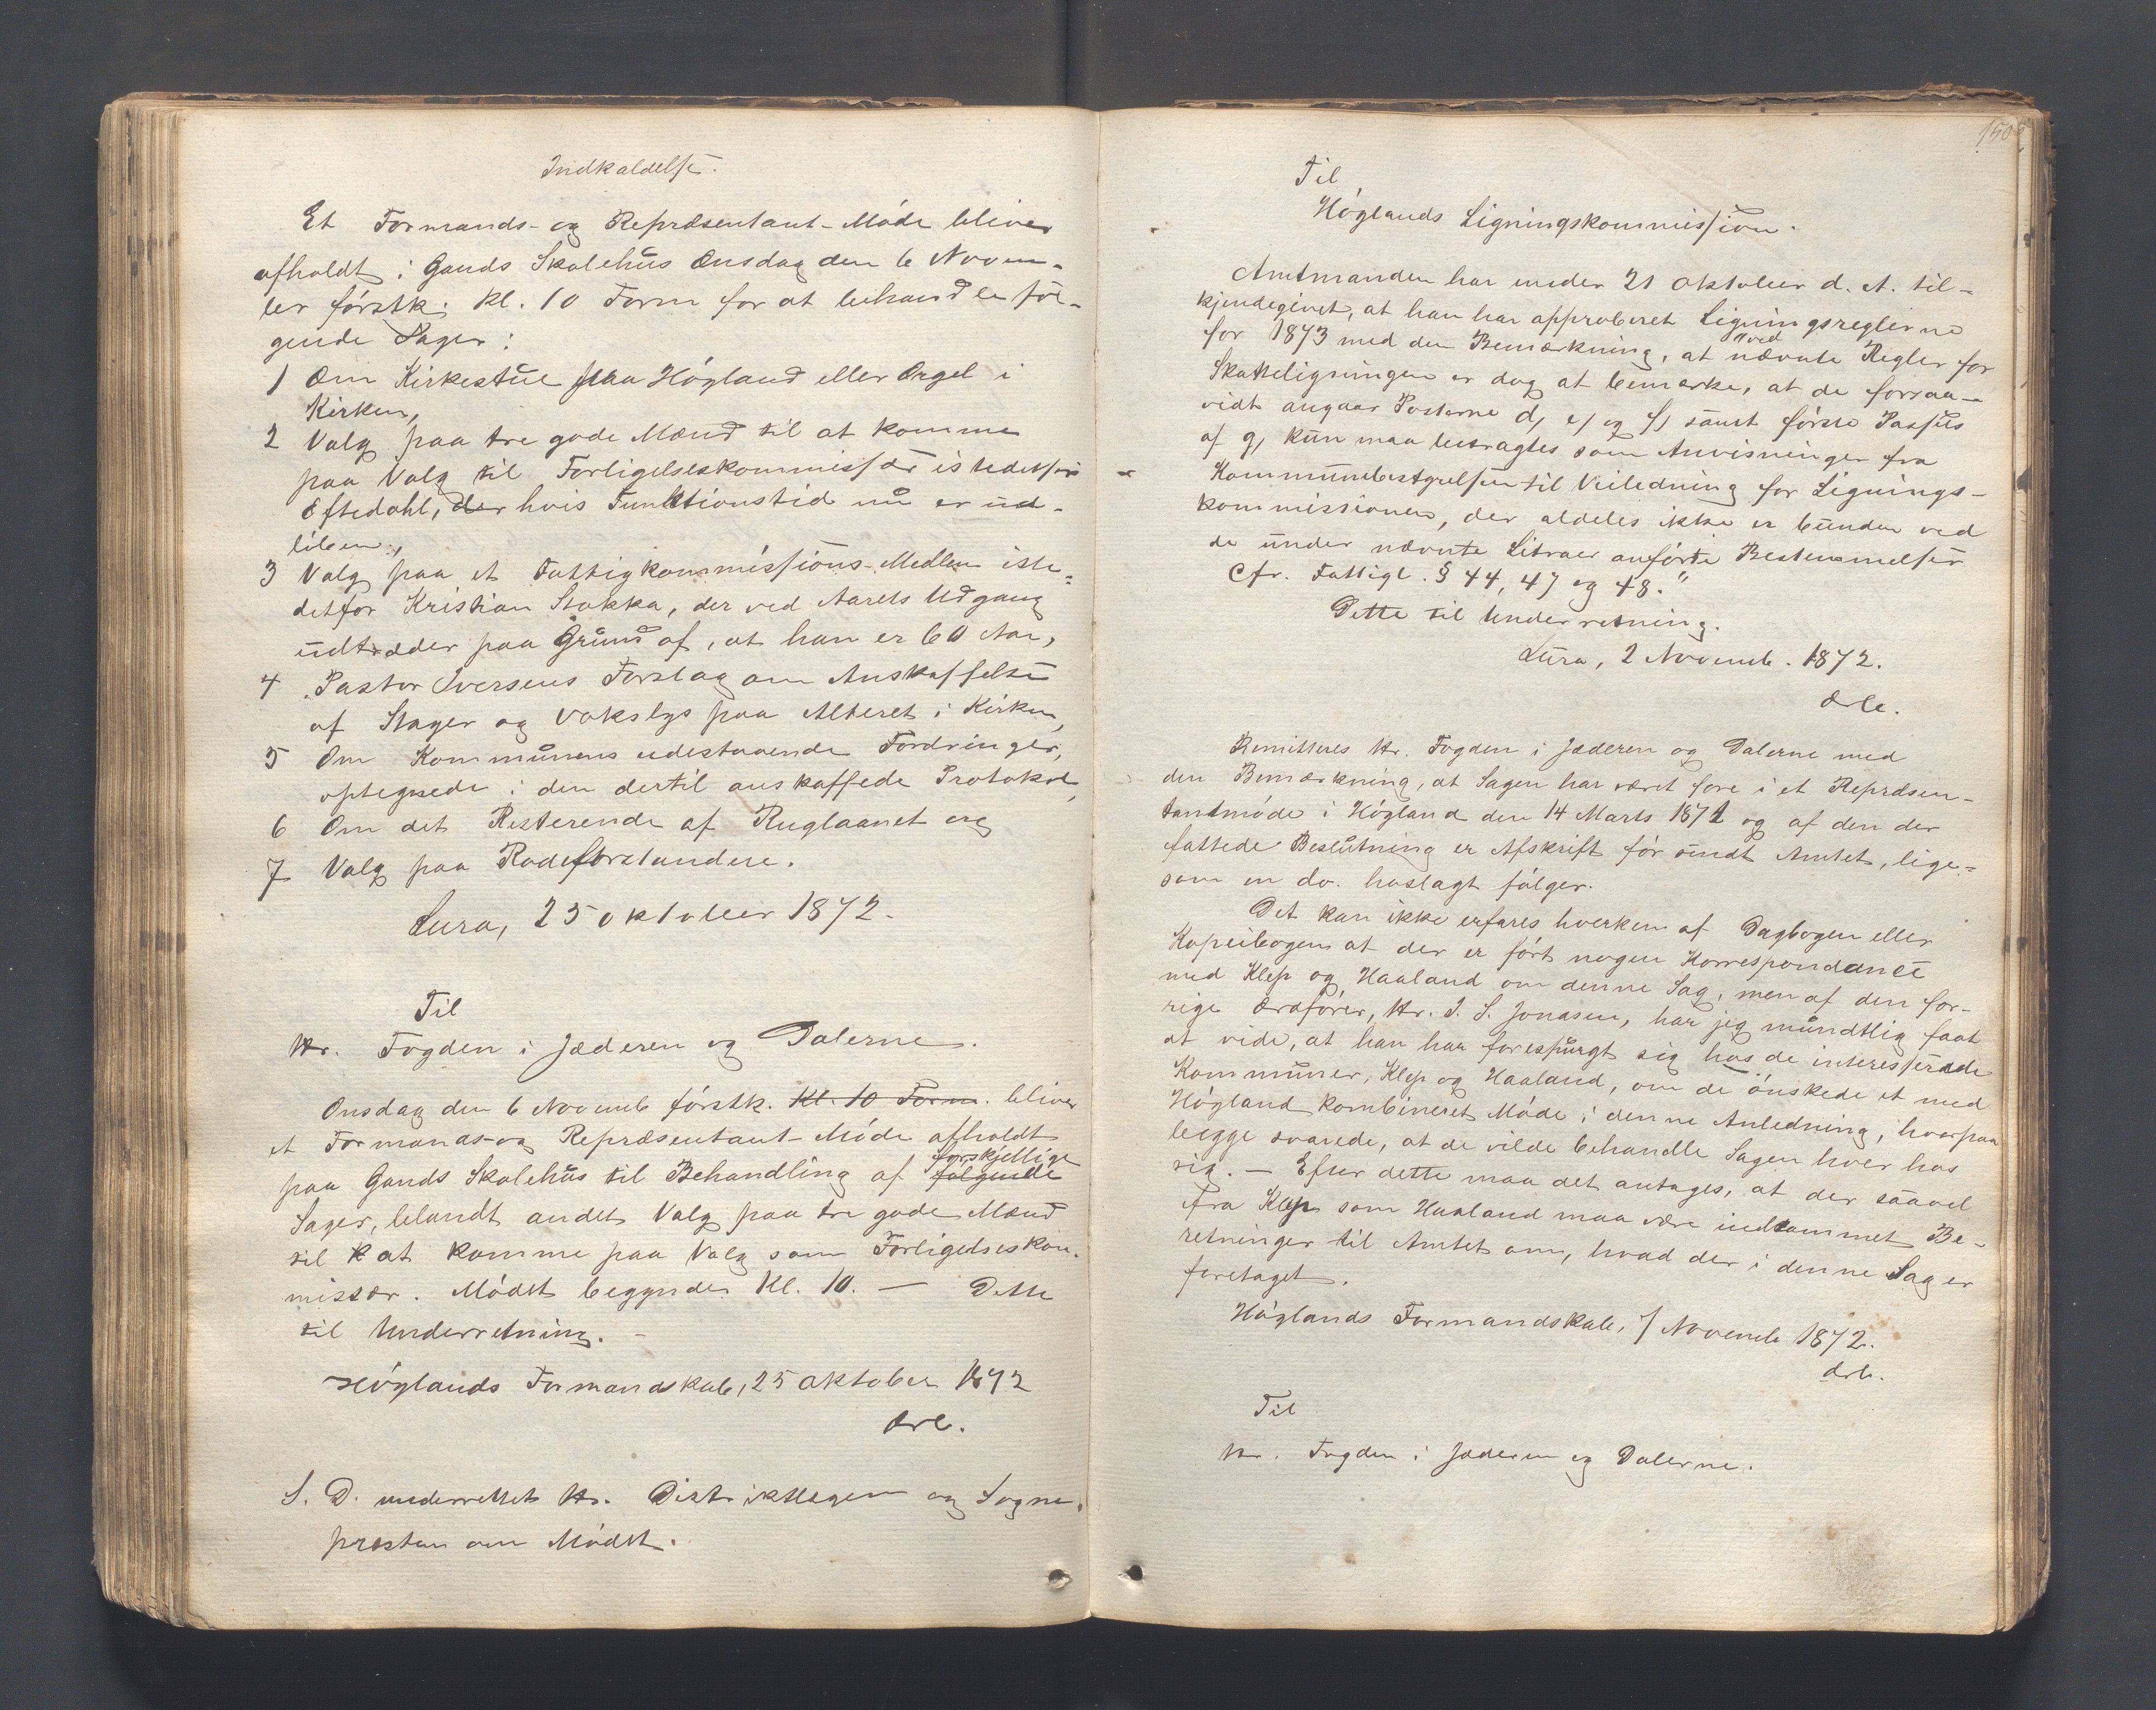 Indkaldelse.
Et Formands- og Repræsentant-Møde bliver
afholdt i Gands Skolehus Onsdag den 6 Novem-
ber førstk. Kl. 10 Form for at behandle føl-
gende Sager:
1 Om Kirkestue paa Høgland eller Orgel i
Kirken,
2 Valg paa tre gode Mænd til at komme
paa Valg til Forligelseskommissær istedetfor
Eftedahl, der hvis Funktionstid nu er ud-
løben,
3 Valg paa et Fattigkommissions-Medlem iste-
detfor Kristian Stokka, der ved Aarets Udgang
udtræder paa Grund af, at han er 60 Aar,
4 Pastor Iversens Forslag om Anskaffelse
af Stager og Vokslys paa Alteret i Kirken,
5 Om Kommunens udestaaende Fordringer,
optegnede i den dertil anskaffede Protokol,
6 Om det Resterende af Ruglaanet og
7 Valg paa Rodeforstandere.
Lura, 25 oktober 1872.
Til
Hr. Fogden i Jæderen og Dalerne.
Onsdag den 6 Novemb førstk. Kl. 10 Form. bliver
et Formands- og Repræsentant-Møde afholdt
paa Gands Skolehus til Behandling af følgende forskjellige
Sager, blandt andet Valg paa tre gode Mænd
til k at komme paa Valg som Forligelseskom-
missær. Mødet begynder Kl. 10. — Dette
til Underretning. –
Høglands Formandskab, 25 oktober 1872
Ærb.
S. D. underrettet Hr. Distriktslægen og Sogne-
presten om Mødet.
150
Til
Høglands Ligningskommission.
Amtmanden har under 21 oktober d. A. til-
kjendegivet, at han har approberet Ligningsreglerne
for 1873 med den Bemærkning, at "ved nævnte Regler for
Skatteligningen er dog at bemærke, at de forsaa-
vidt angaar Posterne d, e, og f, samt første Passus
af g, kun maa betragtes som Anvisninger fra
Kommunebestyrelsen til Veiledning for Lignings-
kommissionen, der aldeles ikke er bunden ved
de under nævnte Litraer anførte Bestemmelser
Cfr. Fattigl. § 44, 47 og 48."
Dette til Underretning.
Lura, 2 Novemb. 1872.
Ærb.
Remitteres Hr. Fogden i Jæderen og Dalerne med
den Bemærkning, at Sagen har været fore i et Repræsen-
tantmøde i Høgland den 14 Marts 1872 og af den der
fattede Beslutning er Afskrift før sendt Amtet, lige-
som en do. hoslagt følger.
Det kan ikke erfares hverken af Dagbogen eller
Kopeibogen at der er ført nogen Korrespondance
med Klep og Haaland om denne Sag, men af den for-
rige Ordfører, Hr. I. S. Jonasen, har jeg mundtlig faat
at vide, at han har forespurgt sig hos de interesserede
Kommuner, Klep og Haaland, om de ønskede et med
Høgland kombineret Møde i denne Anledning, hvorpaa
begge svarede, at de vilde behandle Sagen hver hos
sig. — Efter dette maa det antages, at der saavel
fra Klep som Haaland maa være indkommet Be-
retninger til Amtet om, hvad der i denne Sag er
foretaget.
Høglands Formandskab, 7 Novemb 1872.
Ærb.
Til
Hr. Fogden i Jæderen og Dalerne.